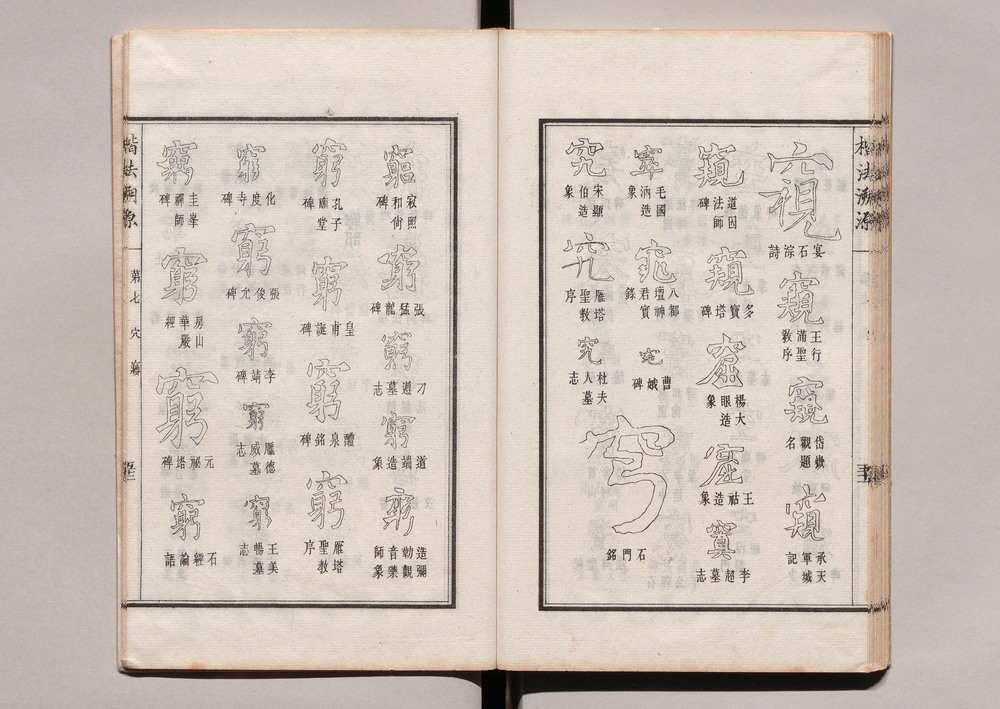 楷法溯源
窺
宴石淙詩
窺
王行滿聖教序
窺
岱嶽觀題名
窺
承天軍城記
窺
道因法師碑
窺
多寶塔碑
窟
楊大眼造象
窟
王祜造象
寘
李超墓志
毛國洒造象
八都壇神君實錄
曹娥碑
穹
石門銘
究
宋顯伯造象
究
雁塔聖教序
究
杜夫人墓志
窮
寂照和尚碑
窮
張猛龍碑
窮
刁遵墓志
窮
道端造象
窮
造彌勒觀音藥師象
窮
孔子廟堂碑
窮
皇甫誕碑
窮
醴泉銘碑
窮
雁塔聖教序
窮
化度寺碑
窮
張俊允碑
窮
李靖碑
窮
龐德威墓志
窮
王美暢墓志
窮
圭峯禪師碑
窮
房山華嚴經
窮
元祕塔碑
窮
石經論語
楷法溯源
第七 穴部